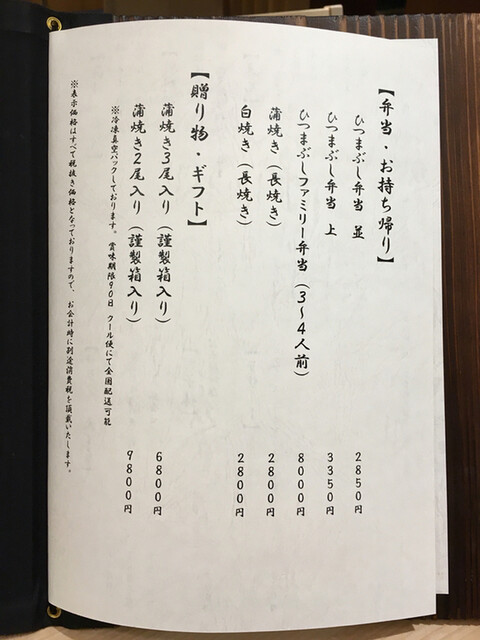 【弁当・お持ち帰り】
ひつまぶし弁当 並 2850円
ひつまぶし弁当 上 3350円
ひつまぶしファミリー弁当（3～4人前） 8000円
蒲焼き（長焼き） 2800円
白焼き（長焼き） 2800円
【贈り物・ギフト】
蒲焼き3尾入り（謹製箱入り） 6800円
蒲焼き2尾入り（謹製箱入り） 9800円
※冷凍真空パックしております。 賞味期限90日 クール便にて全国配送可能
※表示価格はすべて税抜き価格となっておりますので、お会計時に別途消費税を頂戴いたします。